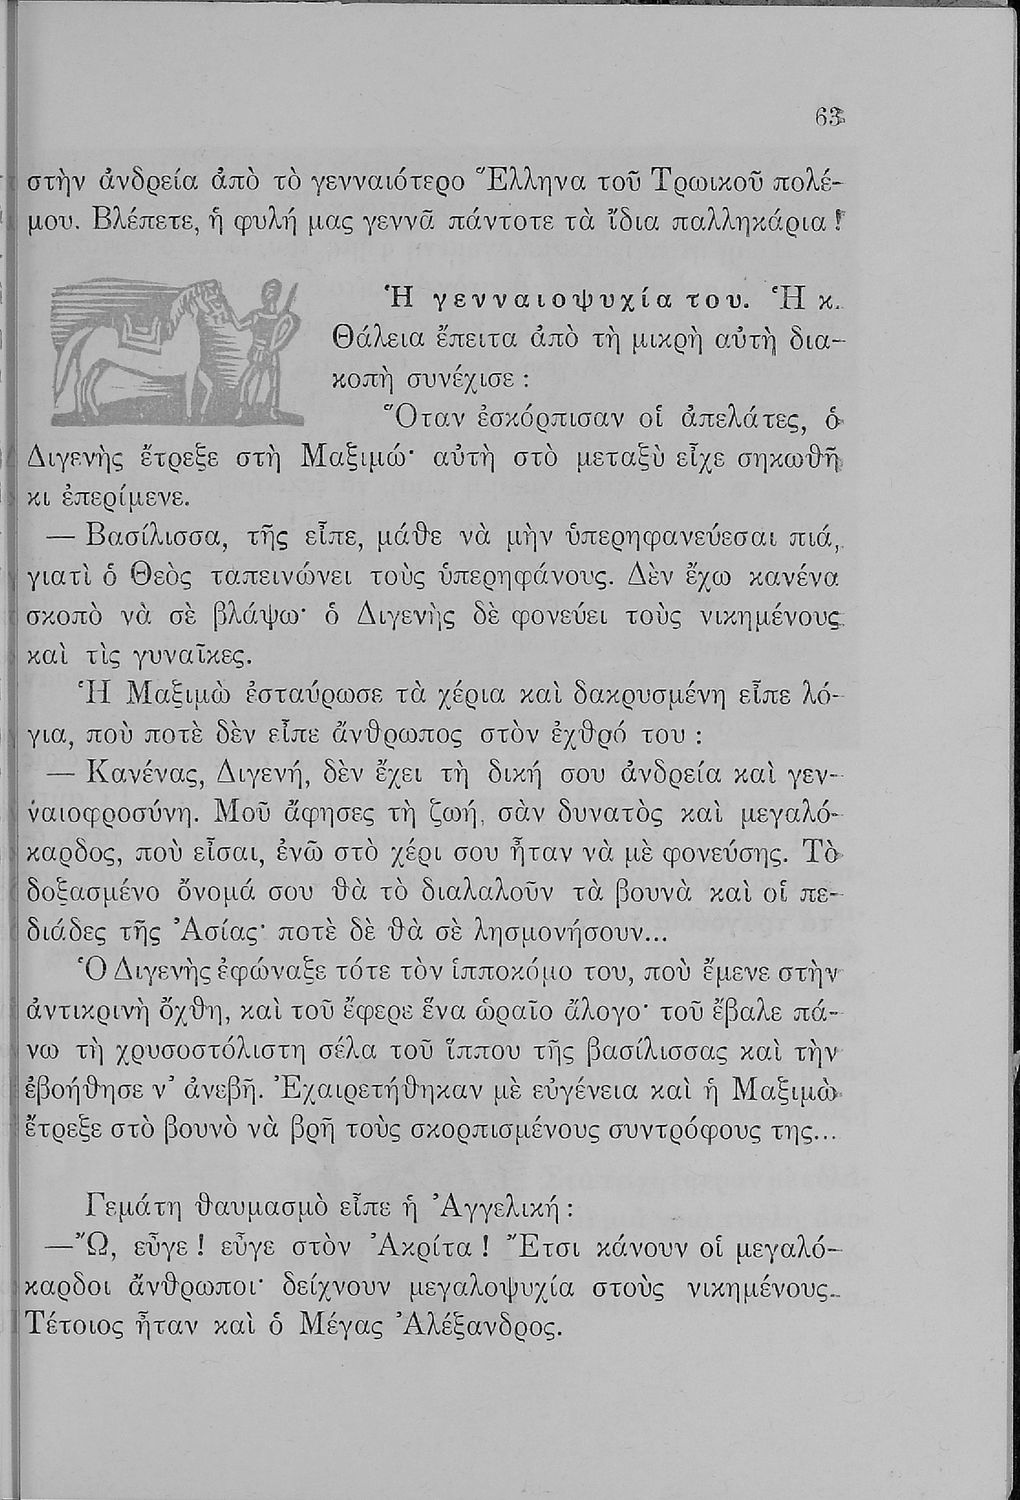 63
στὴν ἀνδρεία ἀπὸ τὸ γενναιότερο Ἕλληνα τοῦ Τρωικοῦ πολέ-
μου. Βλέπετε, ἡ φυλή μας γεννᾶ πάντοτε τὰ ἴδια παλληκάρια !
Ἡ γενναιοψυχία του. Ἡ κ.
Θάλεια ἔπειτα ἀπὸ τὴ μικρὴ αὐτὴ δια-
κοπὴ συνέχισε :
Ὅταν ἐσκόρπισαν οἱ ἀπελάτες, ὁ
Διγενὴς ἔτρεξε στὴ Μαξιμώ· αὐτὴ στὸ μεταξὺ εἶχε σηκωθῆ
κι ἐπερίμενε.
— Βασίλισσα, τῆς εἶπε, μάθε νὰ μὴν ὑπερηφανεύεσαι πιά,
γιατὶ ὁ Θεὸς ταπεινώνει τοὺς ὑπερηφάνους. Δὲν ἔχω κανένα
σκοπὸ νὰ σὲ βλάψω· ὁ Διγενὴς δὲ φονεύει τοὺς νικημένους
καὶ τὶς γυναῖκες.
Ἡ Μαξιμὼ ἐσταύρωσε τὰ χέρια καὶ δακρυσμένη εἶπε λό-
για, ποὺ ποτὲ δὲν εἶπε ἄνθρωπος στὸν ἐχθρό του :
— Κανένας, Διγενή, δὲν ἔχει τὴ δική σου ἀνδρεία καὶ γεν-
ναιοφροσύνη. Μοῦ ἄφησες τὴ ζωή, σὰν δυνατὸς καὶ μεγαλό-
καρδος, ποὺ εἶσαι, ἐνῶ στὸ χέρι σου ἦταν νὰ μὲ φονεύσης. Τὸ
δοξασμένο ὄνομά σου θὰ τὸ διαλαλοῦν τὰ βουνὰ καὶ οἱ πε-
διάδες τῆς Ἀσίας· ποτὲ δὲ θὰ σὲ λησμονήσουν...
Ὁ Διγενὴς ἐφώναξε τότε τὸν ἱπποκόμο του, ποὺ ἔμενε στὴν
ἀντικρινὴ ὄχθη, καὶ τοῦ ἔφερε ἕνα ὡραῖο ἄλογο· τοῦ ἔβαλε πά-
νω τὴ χρυσοστόλιστη σέλα τοῦ ἵππου τῆς βασίλισσας καὶ τὴν
ἐβοήθησε ν᾽ ἀνεβῆ. Ἐχαιρετήθηκαν μὲ εὐγένεια καὶ ἡ Μαξιμὼ
ἔτρεξε στὸ βουνὸ νὰ βρῆ τοὺς σκορπισμένους συντρόφους της...
Γεμάτη θαυμασμὸ εἶπε ἡ Ἀγγελική :
— Ὦ, εὖγε ! εὖγε στὸν Ἀκρίτα ! Ἔτσι κάνουν οἱ μεγαλό-
καρδοι ἄνθρωποι· δείχνουν μεγαλοψυχία στοὺς νικημένους.
Τέτοιος ἦταν καὶ ὁ Μέγας Ἀλέξανδρος.